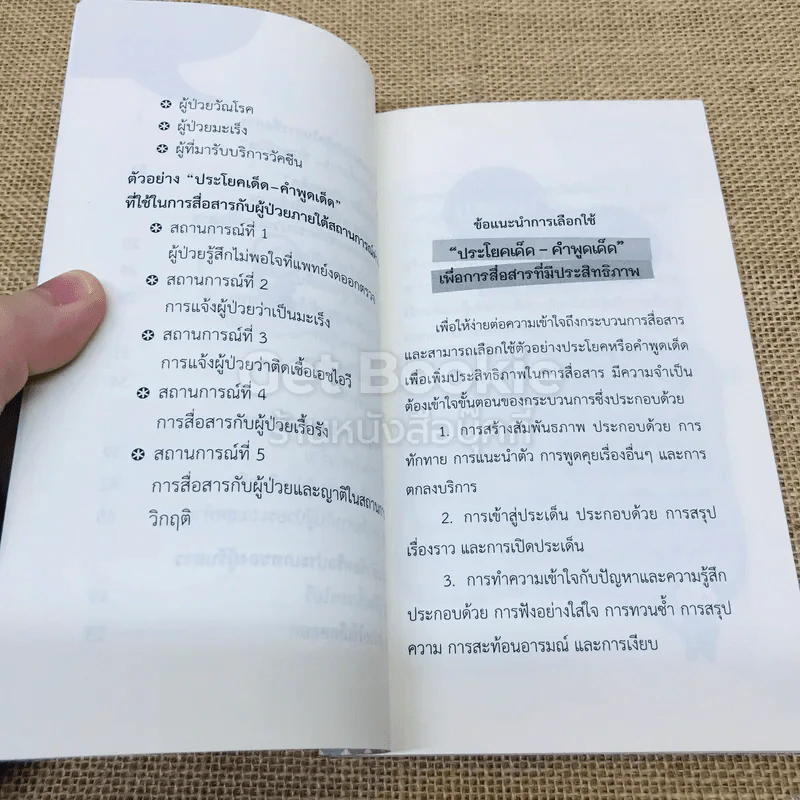 ✪ ผู้ป่วยวัณโรค
✪ ผู้ป่วยมะเร็ง
✪ ผู้ที่มารับบริการวัคซีน
ตัวอย่าง “ประโยคเด็ด-คำพูดเด็ด”
ที่ใช้ในการสื่อสารกับผู้ป่วยภายใต้สถานการณ์
✪ สถานการณ์ที่ 1
ผู้ป่วยรู้สึกไม่พอใจที่แพทย์งดออกตรวจ
✪ สถานการณ์ที่ 2
การแจ้งผู้ป่วยว่าเป็นมะเร็ง
✪ สถานการณ์ที่ 3
การแจ้งผู้ป่วยว่าติดเชื้อเอชไอวี
✪ สถานการณ์ที่ 4
การสื่อสารกับผู้ป่วยเรื้อรัง
✪ สถานการณ์ที่ 5
การสื่อสารกับผู้ป่วยและญาติในสถานการ
วิกฤติ
ข้อแนะนำการเลือกใช้
“ประโยคเด็ด – คำพูดเด็ด”
เพื่อการสื่อสารที่มีประสิทธิภาพ
เพื่อให้ง่ายต่อความเข้าใจถึงกระบวนการสื่อสาร
และสามารถเลือกใช้ตัวอย่างประโยคหรือคำพูดเด็ด
เพื่อเพิ่มประสิทธิภาพในการสื่อสาร มีความจำเป็น
ต้องเข้าใจขั้นตอนของกระบวนการซึ่งประกอบด้วย
1. การสร้างสัมพันธภาพ ประกอบด้วย การ
ทักทาย การแนะนำตัว การพูดคุยเรื่องอื่นๆ และการ
ตกลงบริการ
2. การเข้าสู่ประเด็น ประกอบด้วย การสรุป
เรื่องราว และการเปิดประเด็น
3. การทำความเข้าใจกับปัญหาและความรู้สึก
ประกอบด้วย การฟังอย่างใส่ใจ การทวนซ้ำ การสรุป
ความ การสะท้อนอารมณ์ และการเงียบ
Get Bookie
ร้านหนังสือบุ๊คกี้